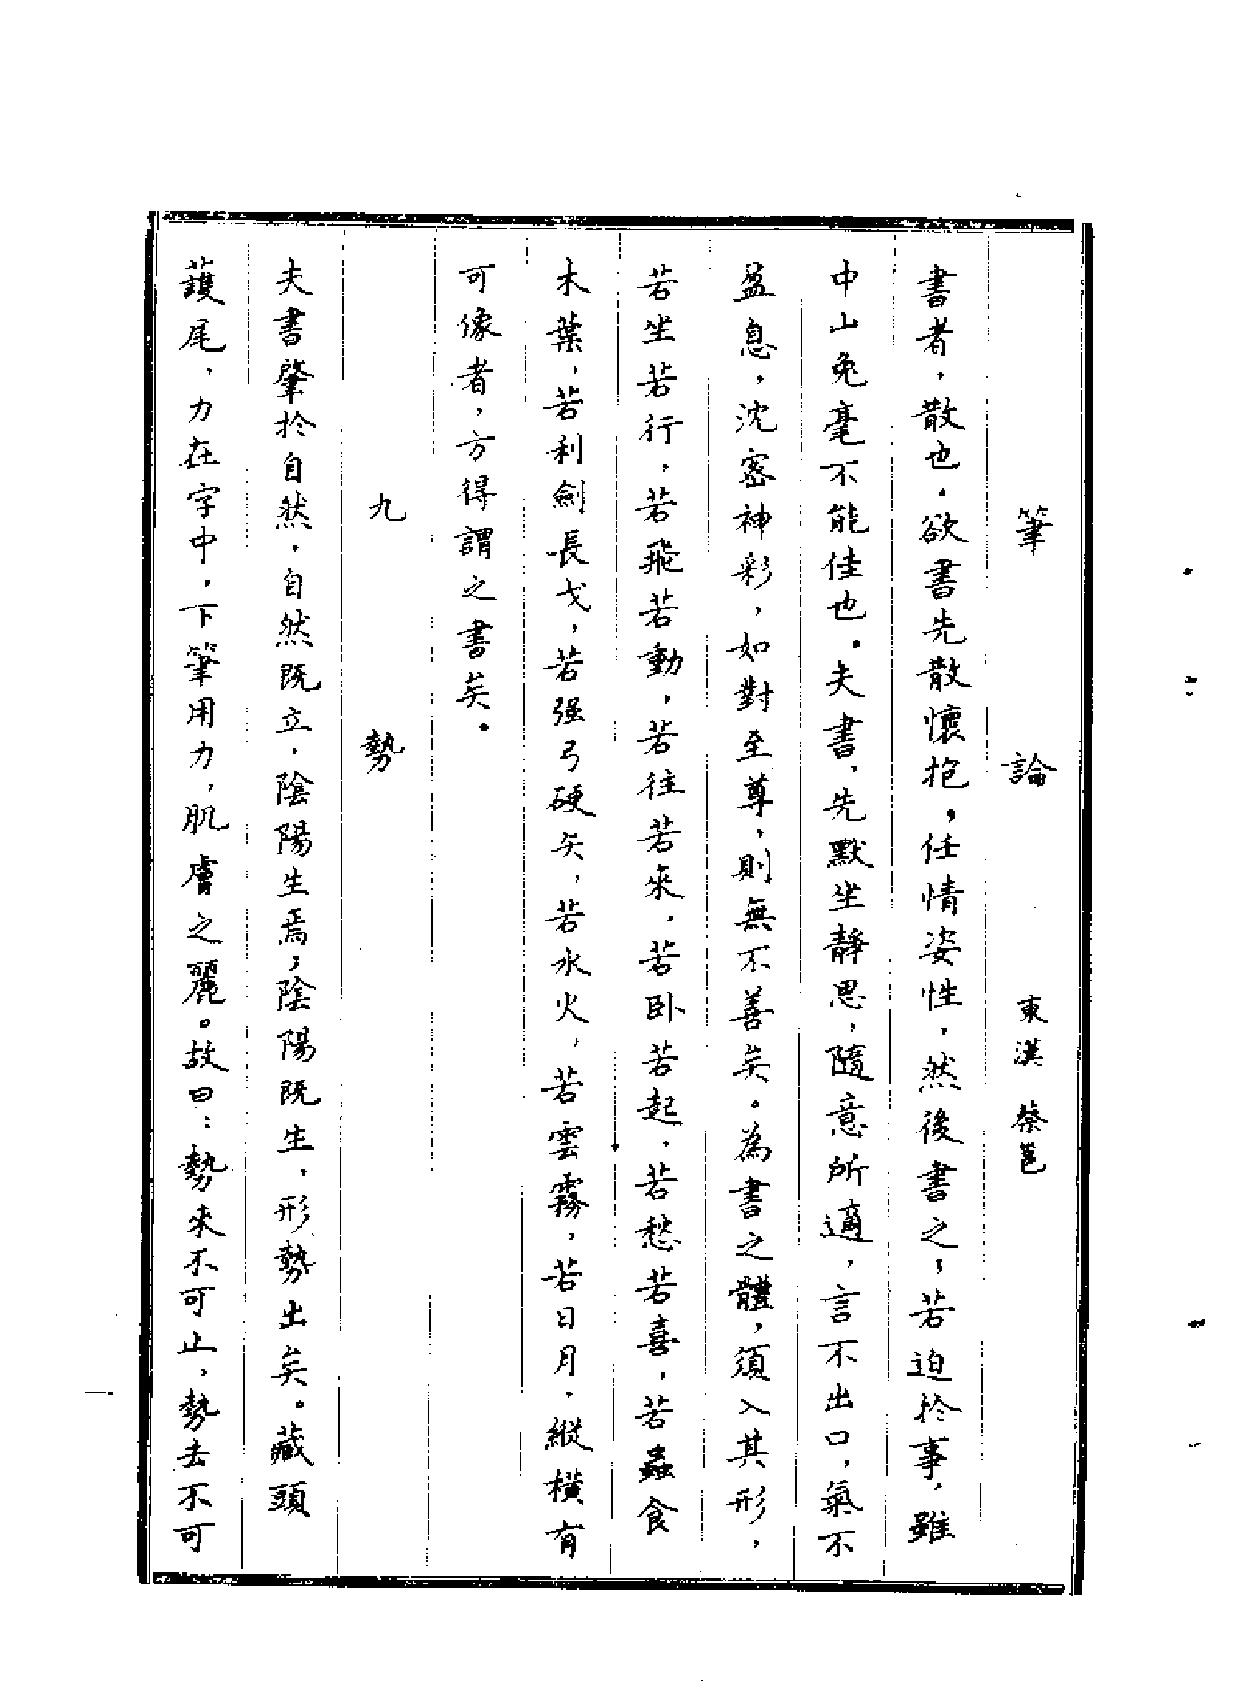 筆論 東漢 蔡邕
書者，散也。欲書先散懷抱，任情姿性，然後書之；若迫於事，雖
中山兔毫不能佳也。夫書，先默坐靜思，隨意所適，言不出口，氣不
盈息，沈密神彩，如對至尊，則無不善矣。為書之體，須入其形，
若坐若行，若飛若動，若往若來，若卧若起，若愁若喜，若蟲食
木葉，若利劍長戈，若强弓硬矢，若水火，若雲霧，若日月，縱橫有
可像者，方得謂之書矣。
九勢
夫書肇於自然，自然既立，陰陽生焉；陰陽既生，形勢出矣。藏頭
護尾，力在字中，下筆用力，肌膚之麗。故曰：勢來不可止，勢去不可